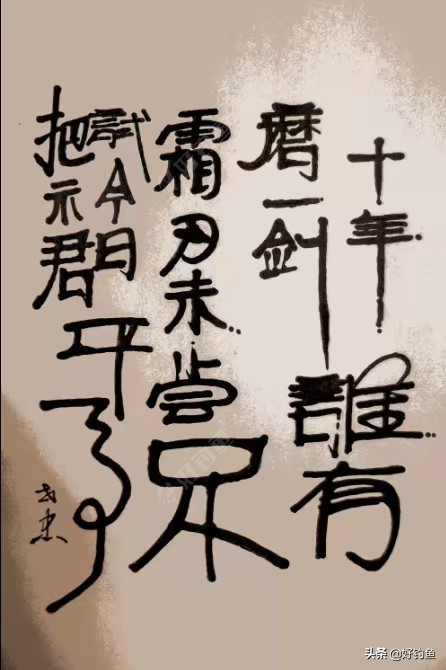 十年
磨一剑
霜刃未尝
試今日
把示君
誰有
不
平事
头条 @好钓鱼